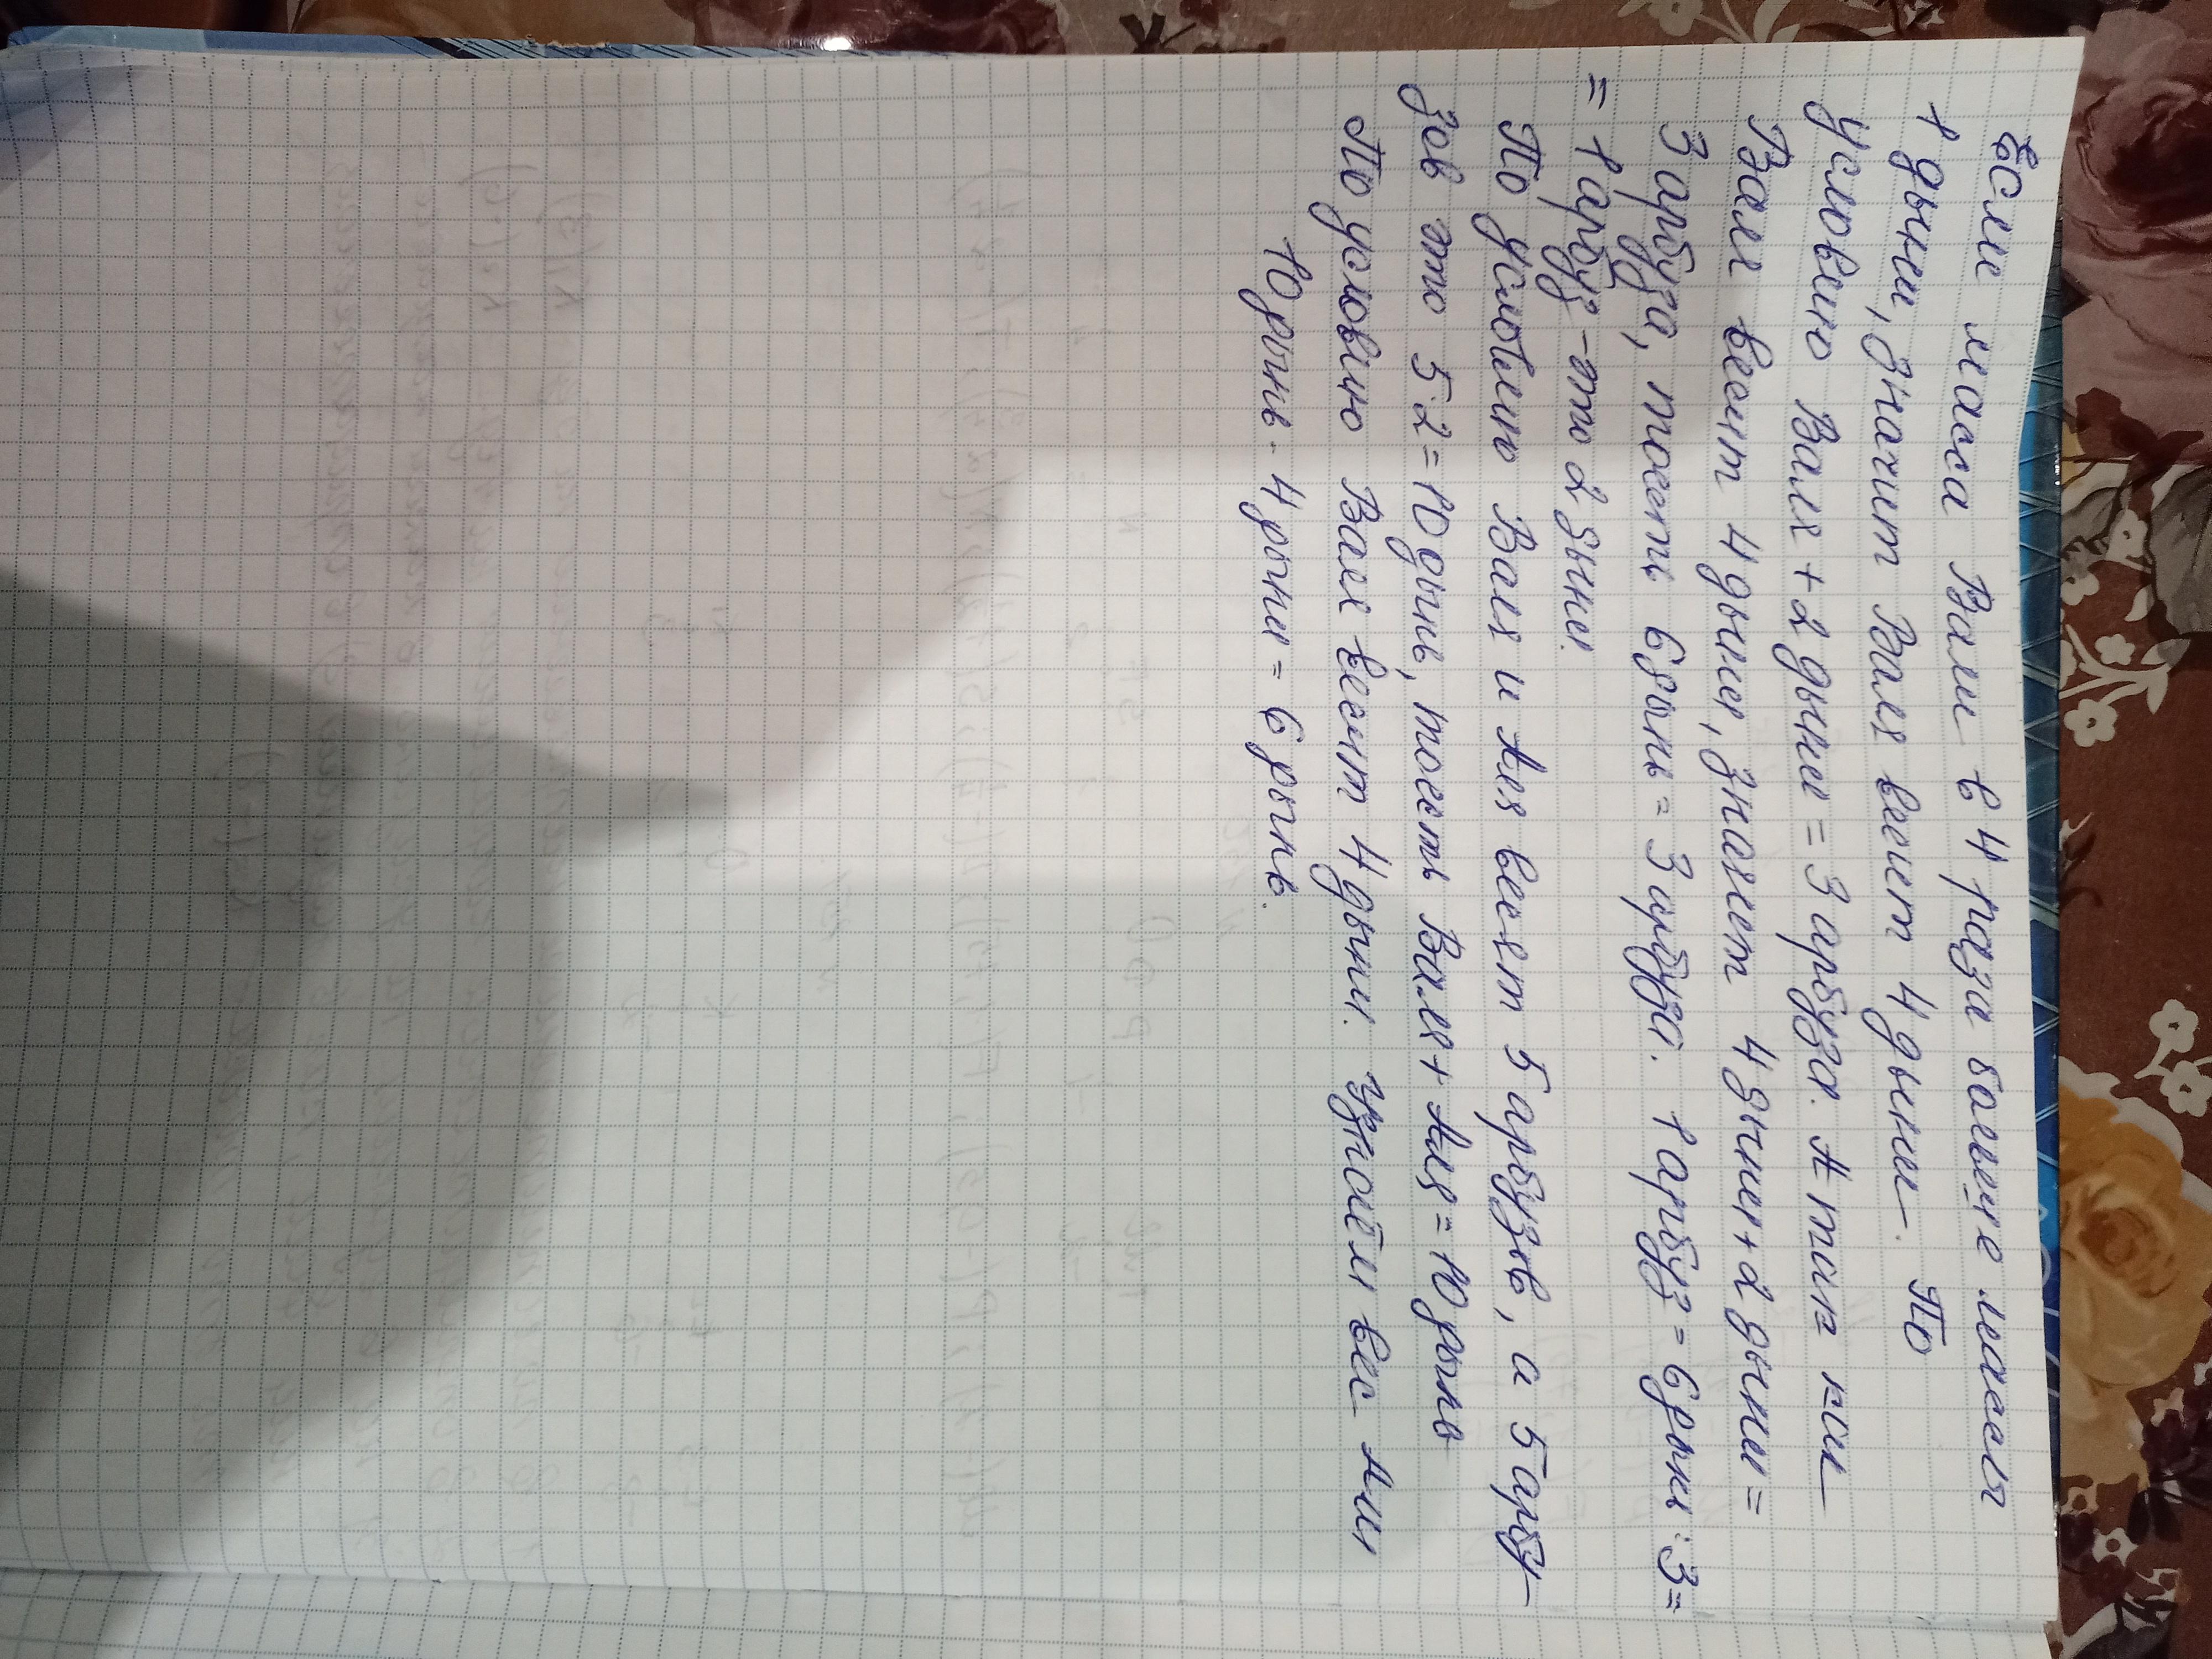 Если масса Вали в 4 раза больше массы
1 дыни, значит Валя весит 4 дыни. По
условию Валя + 2 дыни = 3 арбуза. А так как
Валя весит 4 дыни, значит 4 дыни + 2 дыни =
3 арбуза, тоесть 6 дынь = 3 арбуза. 1 арбуз = 6 дынь : 3 =
= 1 арбуз - это 2 дыни.
По условию Валя и Аля весят 5 арбузов, а 5 арбу-
зов это 5·2 = 10 дынь, тоесть Валя + Аля = 10 дынь
По условию Валя весит 4 дыни. Узнаём вес Али
10 дынь - 4 дыни = 6 дынь.